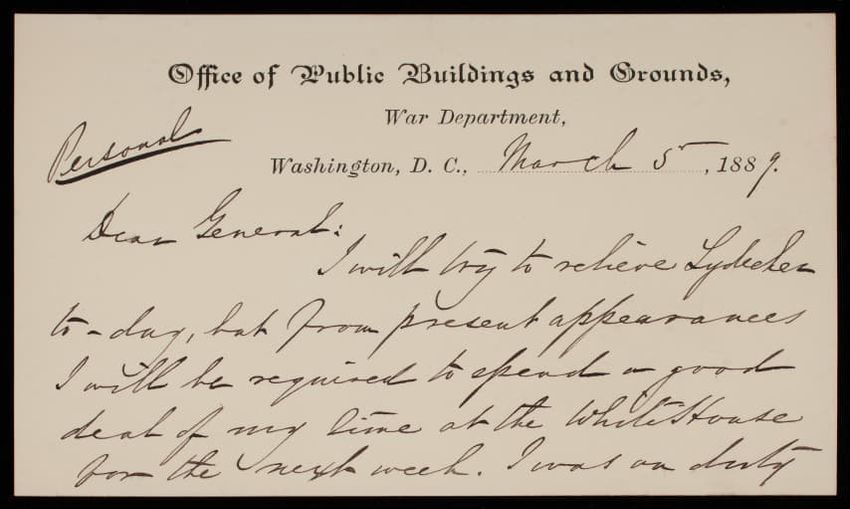 Office of Public Buildings and Grounds,
War Department,
Personal
Washington, D. C., March 5, 1889.
Dear General:
I will try to relieve Lydecker
to-day, but from present appearances
I will be required to spend a good
deal of my time at the White House
for the next week. I was on duty